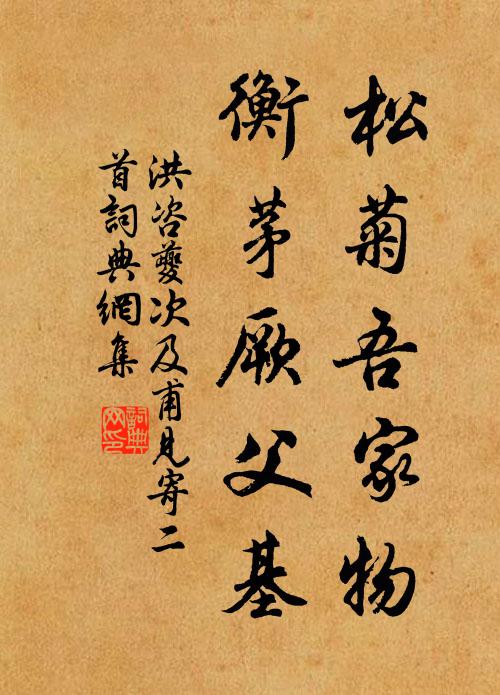 松菊吾家物
衡茅厥父基
洪咨夔次及甫見寄二
首詞典網集
詞典
網印